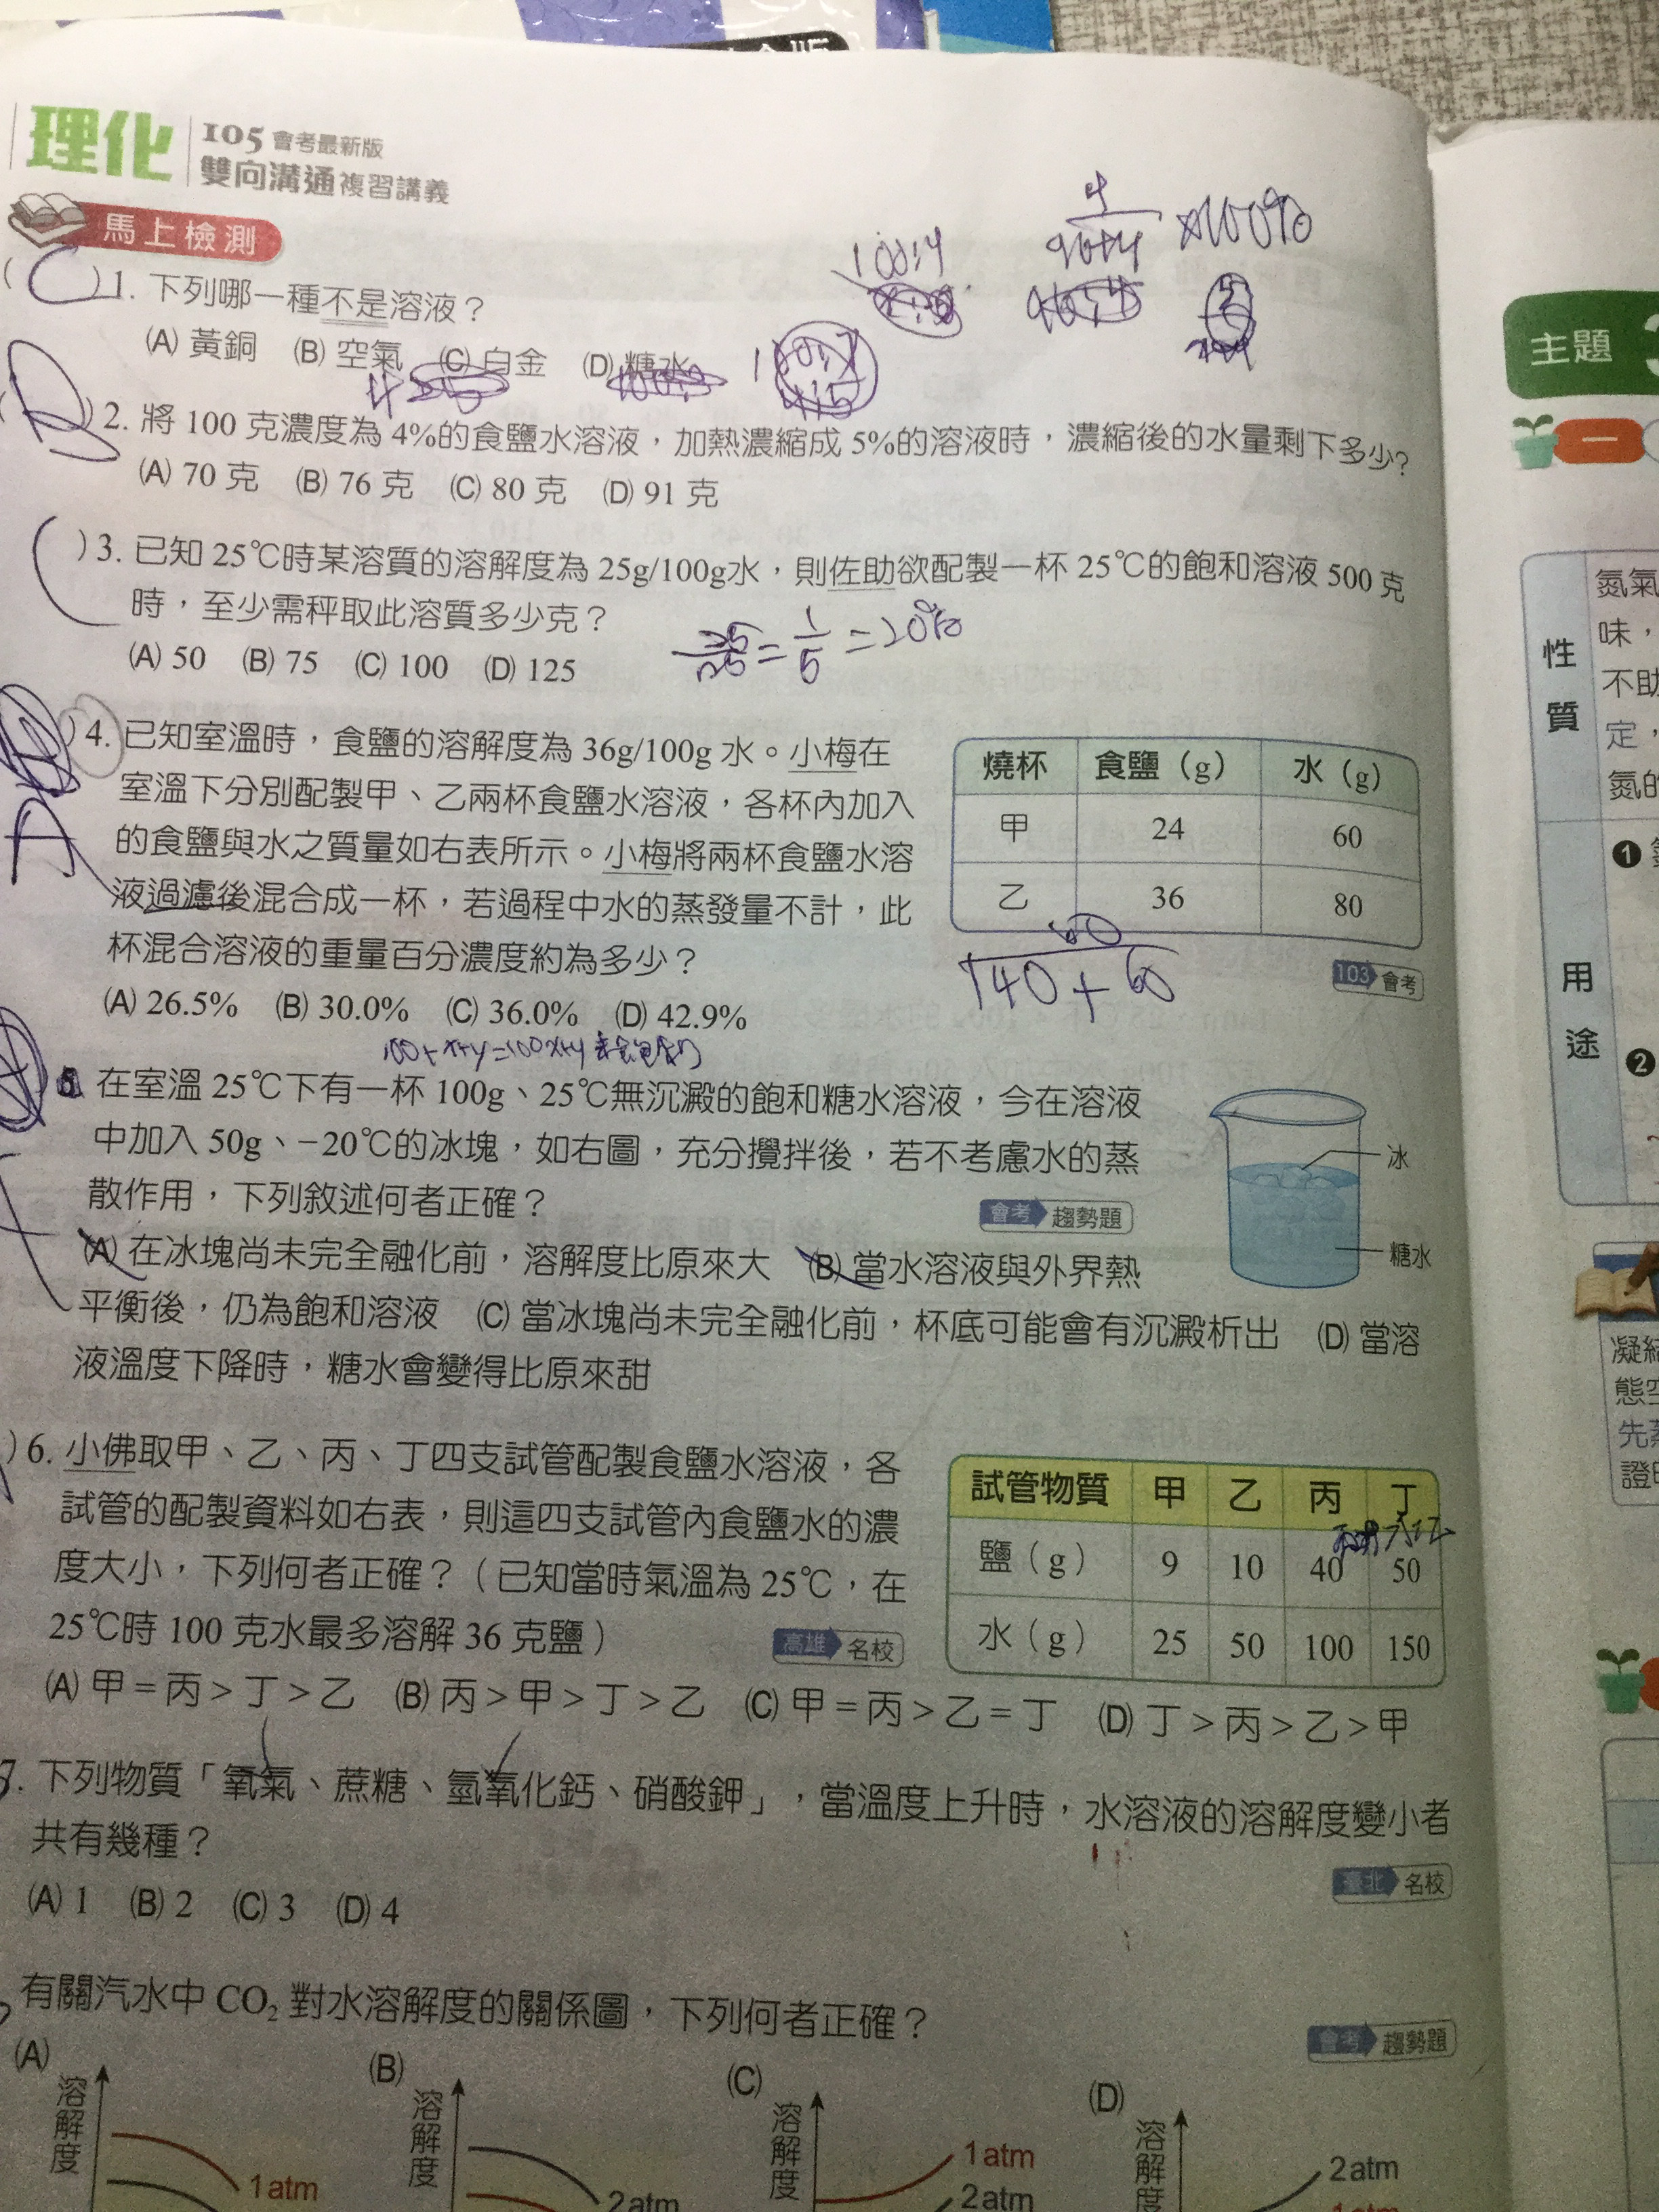 理化
105 會考最新版
雙向溝通複習講義
馬上檢測
(C)1. 下列哪一種不是溶液？
(A) 黃銅 (B) 空氣 (C) 白金 (D) 糖水
)2. 將 100 克濃度為 4%的食鹽水溶液，加熱濃縮成 5%的溶液時，濃縮後的水量剩下多少?
(A) 70 克 (B) 76 克 (C) 80 克 (D) 91 克
)3. 已知 25℃時某溶質的溶解度為 25g/100g水，則佐助欲配製一杯 25℃的飽和溶液 500 克
時，至少需秤取此溶質多少克？
(A) 50 (B) 75 (C) 100 (D) 125
= 1/5 = 20%
)4. 已知室溫時，食鹽的溶解度為 36g/100g 水。小梅在
室溫下分別配製甲、乙兩杯食鹽水溶液，各杯內加入
的食鹽與水之質量如右表所示。小梅將兩杯食鹽水溶
液過濾後混合成一杯，若過程中水的蒸發量不計，此
杯混合溶液的重量百分濃度約為多少？
(A) 26.5% (B) 30.0% (C) 36.0% (D) 42.9%
A
燒杯 食鹽（g） 水（g）
甲 24 60
乙 36 80
140+60
103 會考
在室溫 25℃下有一杯 100g、25℃無沉澱的飽和糖水溶液，今在溶液
中加入 50g、−20℃的冰塊，如右圖，充分攪拌後，若不考慮水的蒸
散作用，下列敘述何者正確？
會考 趨勢題
(A) 在冰塊尚未完全融化前，溶解度比原來大 (B) 當水溶液與外界熱
平衡後，仍為飽和溶液 (C) 當冰塊尚未完全融化前，杯底可能會有沉澱析出 (D) 當溶
液溫度下降時，糖水會變得比原來甜
冰
糖水
)6. 小佛取甲、乙、丙、丁四支試管配製食鹽水溶液，各
試管的配製資料如右表，則這四支試管內食鹽水的濃
度大小，下列何者正確？（已知當時氣溫為 25℃，在
25℃時 100 克水最多溶解 36 克鹽）
高雄 名校
(A) 甲＝丙＞丁＞乙 (B) 丙＞甲＞丁＞乙 (C) 甲＝丙＞乙＝丁 (D) 丁＞丙＞乙＞甲
試管物質 甲 乙 丙 丁
鹽（g） 9 10 40 50
水（g） 25 50 100 150
7. 下列物質「氧氣、蔗糖、氫氧化鈣、硝酸鉀」，當溫度上升時，水溶液的溶解度變小者
共有幾種？
(A) 1 (B) 2 (C) 3 (D) 4
臺北 名校
有關汽水中 CO₂ 對水溶解度的關係圖，下列何者正確？
會考 趨勢題
(A) (B) (C) (D)
溶解度 1atm
溶解度 2atm
溶解度 1atm 2atm
溶解度 2atm
主題
一
性質
用途
氮氣
味，
不助
定，
氮的
❶
❷
凝結
態空
先蒸